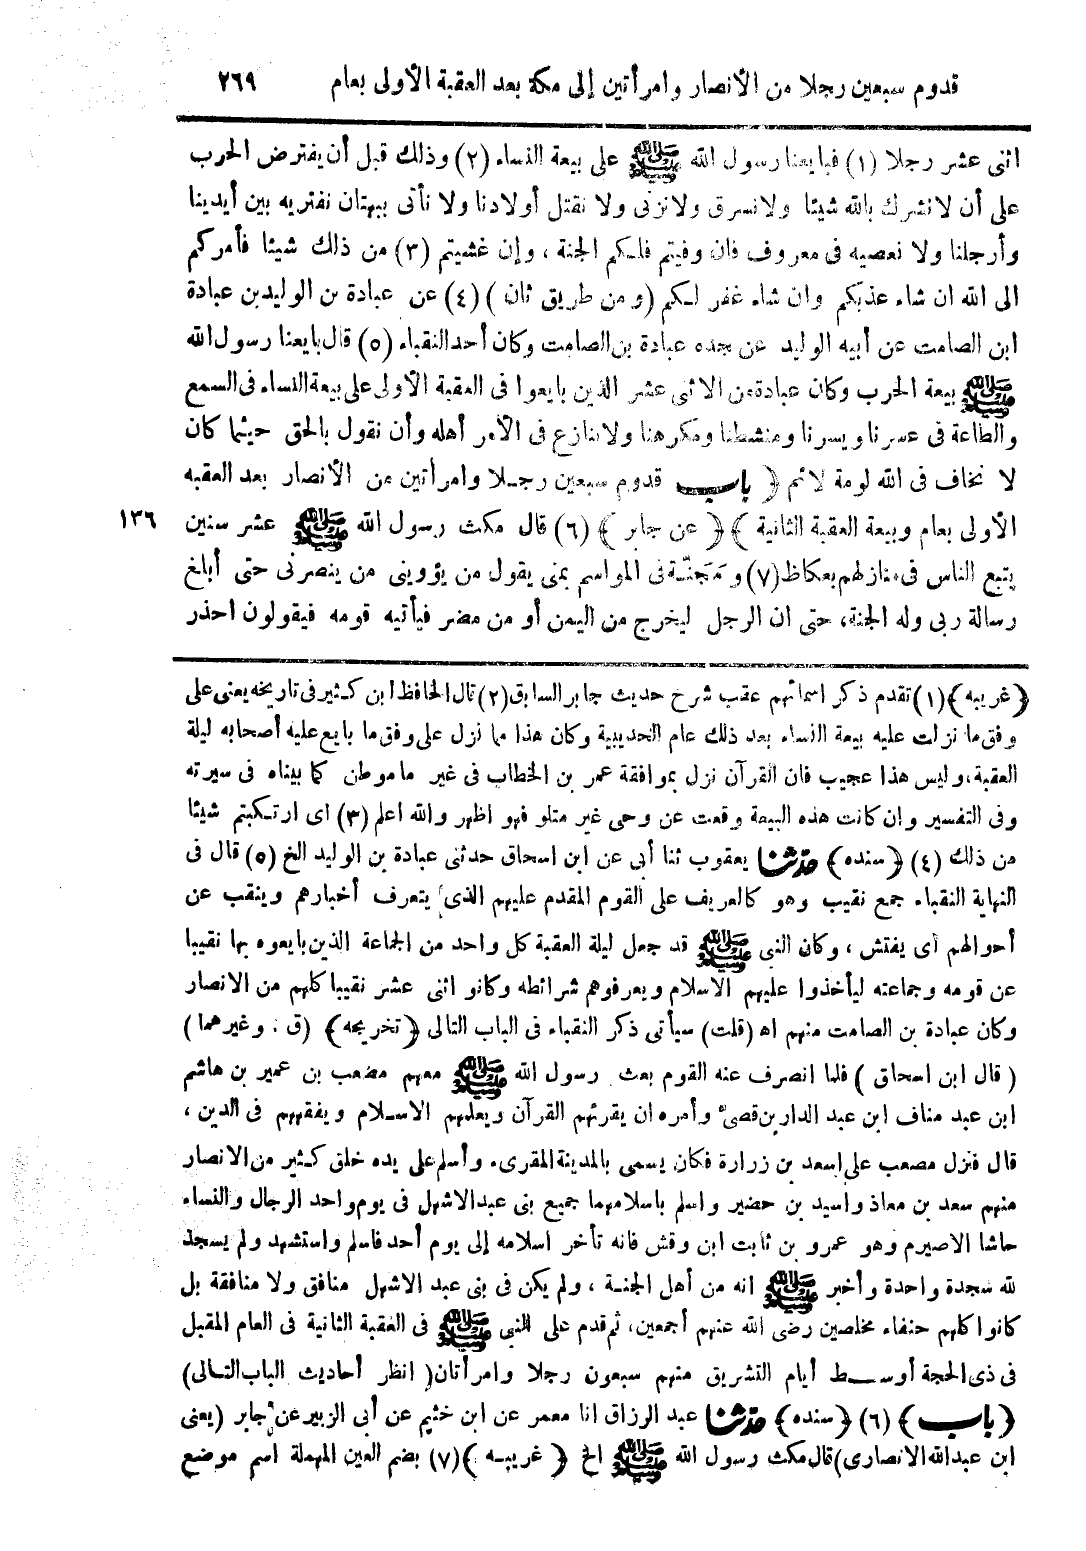 قدوم سبعين رجلا من الأنصار وامرأتين إلى مكة بعد العقبة الأولى بعام ٢٦٩
اثنى عشر رجلا (١) فبايعنا رسول الله ﷺ على بيعة النساء (٢) وذلك قبل أن يفترض الحرب
على أن لا نشرك بالله شيئا ولا نسرق ولا نزنى ولا نقتل أولادنا ولا نأتى ببهتان نفتريه بين أيدينا
وأرجلنا ولا نعصيه فى معروف فان وفيتم فلكم الجنة ، وإن غشيتم (٣) من ذلك شيئا فأمركم
الى الله ان شاء عذبكم وان شاء غفر لكم (ومن طريق ثان ) (٤) عن عبادة بن الوليد بن عبادة
ابن الصامت عن أبيه الوليد عن جده عبادة بن الصامت وكان أحد النقباء (٥) قال بايعنا رسول الله
ﷺ بيعة الحرب وكان عبادة من الاثنى عشر الذين بايعوا فى العقبة الأولى على بيعة النساء فى السمع
والطاعة فى عسرنا ويسرنا ومنشطنا ومكرهنا ولا ننازع فى الأمر أهله وأن نقول بالحق حيثما كان
لا نخاف فى الله لومة لائم ﴿ باب قدوم سبعين رجلا وامرأتين من الأنصار بعد العقبه
الأولى بعام وبيعة العقبة الثانية ﴾ ﴿ عن جابر ﴾ (٦) قال مكث رسول الله ﷺ عشر سنين ١٣٦
يتبع الناس فى منازلهم بعكاظ (٧) ومَجنّة فى المواسم بمنى يقول من يؤوينى من ينصرنى حتى أبلغ
رسالة ربى وله الجنة، حتى ان الرجل ليخرج من اليمن أو من مضر فيأتيه قومه فيقولون احذر
﴿غريبه﴾ (١) تقدم ذكر اسمائهم عقب شرح حديث جابر السابق (٢) قال الحافظ ابن كثير فى تاريخه يعنى على
وفق ما نزلت عليه بيعة النساء بعد ذلك عام الحديبية وكان هذا مما نزل على وفق ما بايع عليه أصحابه ليلة
العقبة، وليس هذا عجيب فان القرآن نزل بموافقة عمر بن الخطاب فى غير ما موطن كما بيناه فى سيرته
وفى التفسير وان كانت هذه البيعة وقعت عن وحى غير متلو فهو اظهر والله اعلم (٣) اى ارتكبتم شيئا
من ذلك (٤) ﴿سنده﴾ حدّثنا يعقوب ثنا أبى عن ابن اسحاق حدثنى عبادة بن الوليد الخ (٥) قال فى
النهاية النقباء جمع نقيب وهو كالعريف على القوم المقدم عليهم الذى يتعرف أخبارهم وينقب عن
أحوالهم أى يفتش ، وكان النبى ﷺ قد جعل ليلة العقبة كل واحد من الجماعة الذين بايعوه بها نقيبا
عن قومه وجماعته ليأخذوا عليهم الاسلام ويعرفوهم شرائطه وكانوا اثنى عشر نقيبا كلهم من الانصار
وكان عبادة بن الصامت منهم اه (قلت) سيأتى ذكر النقباء فى الباب التالى ﴿تخريجه﴾ (ق . وغيرهما)
( قال ابن اسحاق ) فلما انصرف عنه القوم بعث رسول الله ﷺ معهم مصعب بن عمير بن هاشم
ابن عبد مناف ابن عبد الدار بن قصى وأمره ان يقرئهم القرآن ويعلمهم الاسلام ويفقههم فى الدين ،
قال فنزل مصعب على اسعد بن زرارة فكان يسمى بالمدينة المقرىء وأسلم على يده خلق كثير من الانصار
منهم سعد بن معاذ واسيد بن حضير واسلم باسلامهما جميع بنى عبد الاشهل فى يوم واحد الرجال والنساء
حاشا الاصيرم وهو عمرو بن ثابت ابن وقش فانه تأخر اسلامه إلى يوم أحد فاسلم واستشهد ولم يسجد
لله سجدة واحدة وأخبر ﷺ انه من أهل الجنة ، ولم يكن فى بنى عبد الاشهل منافق ولا منافقة بل
كانوا كلهم حنفاء مخلصين رضى الله عنهم أجمعين، ثم قدم على النبى ﷺ فى العقبة الثانية فى العام المقبل
فى ذى الحجة أوسط أيام التشريق منهم سبعون رجلا وامرأتان (انظر أحاديث الباب التالى)
﴿باب﴾ (٦) ﴿سنده﴾ حدّثنا عبد الرزاق انا معمر عن ابن خثيم عن أبى الزبير عن جابر (يعنى
ابن عبد الله الانصارى) قال مكث رسول الله ﷺ الخ ﴿ غريبه ﴾ (٧) بضم العين المهملة اسم موضع